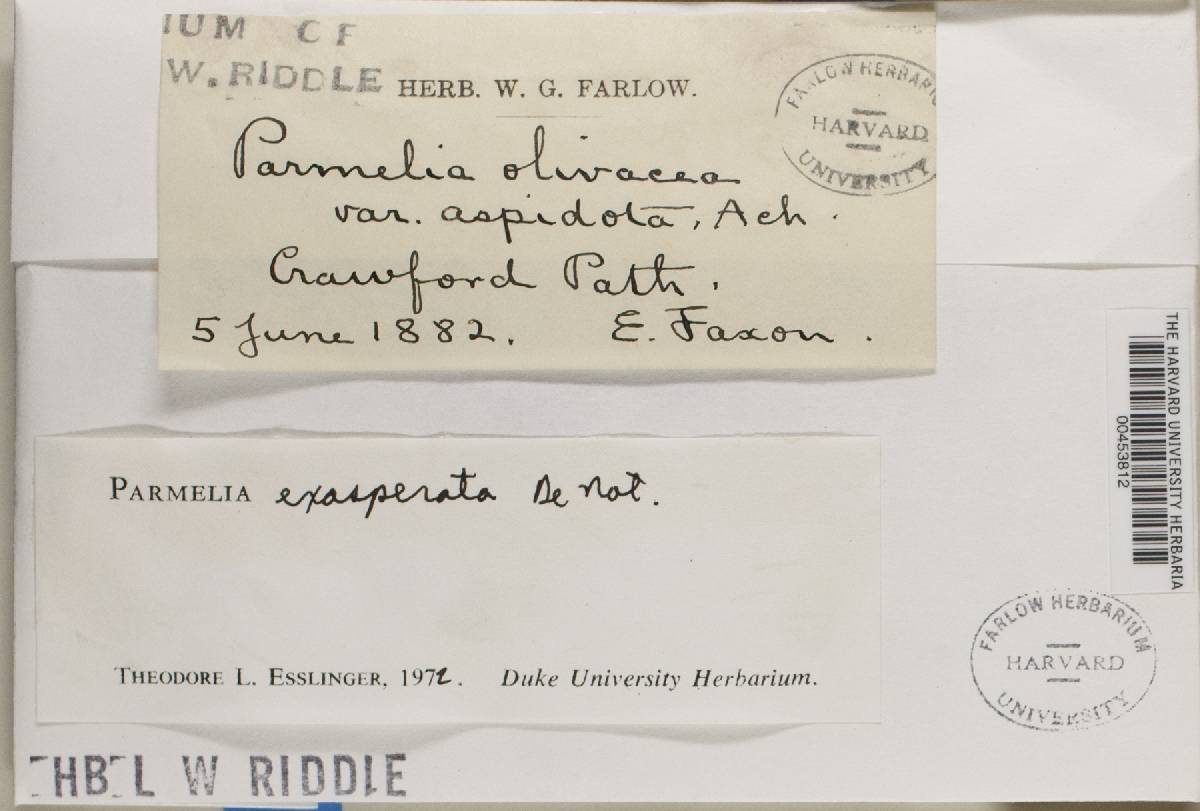 IUM OF
W. RIDDLE
HERB. W. G. FARLOW.
FARLOW HERBARIU
HARVARD
UNIVERSITY
Parmelia olivacea
var. aspidota, Ach.
Crawford Path.
5 June 1882. E. Faxon.
THE HARVARD UNIVERSITY HERBARIA
00453812
PARMELIA exasperata De Not.
THEODORE L. ESSLINGER, 1972. Duke University Herbarium.
FARLOW HERBARIUM
HARVARD
UNIVERSITY
L W RIDDLE